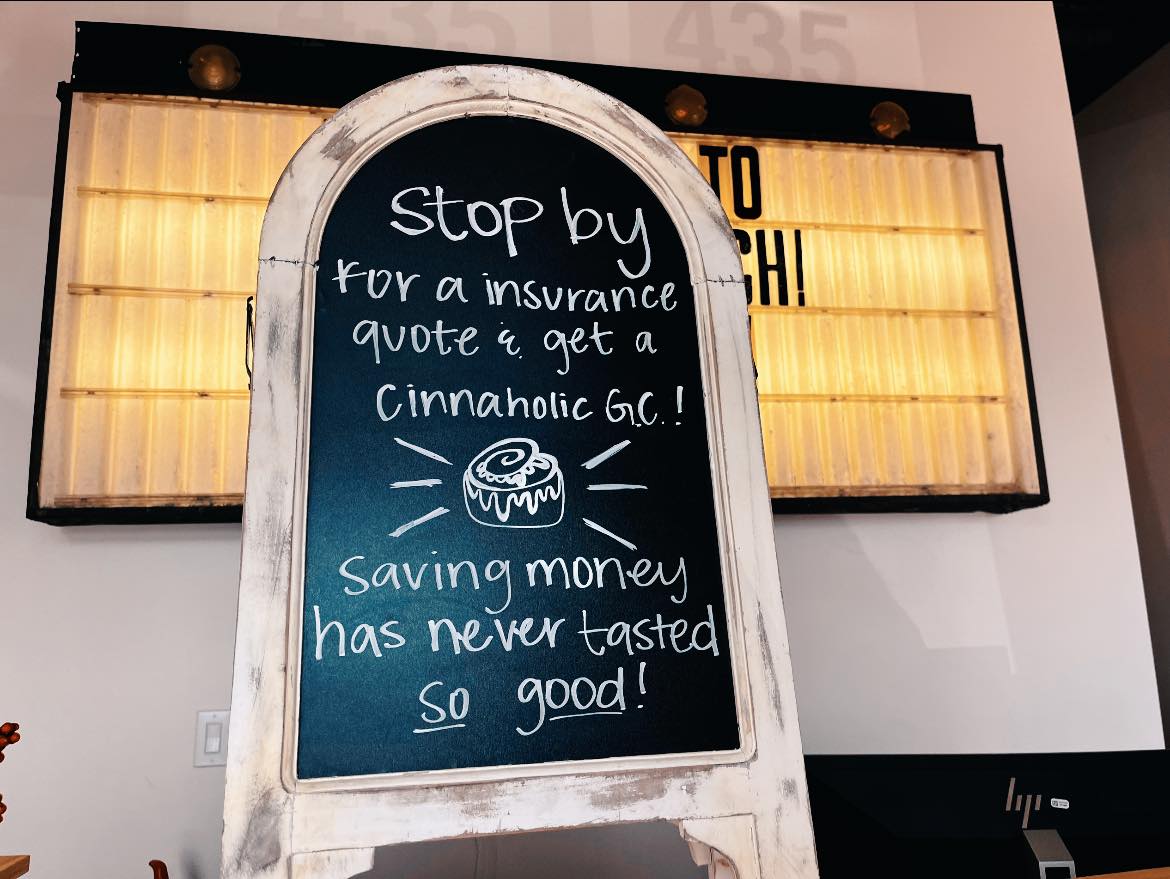 435 435
TO
GH!
Stop by
For a insurance
quote & get a
Cinnaholic G.C.!
Saving money
has never tasted
so good!
hp